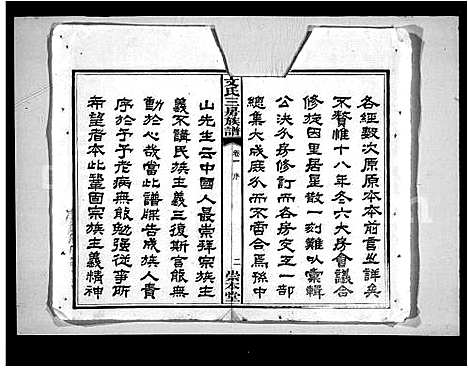 各經數次原原本本前言之詳矣
不贅惟十八年冬六大房會議合
修旋因里居星散一刻難以彙輯
公決分房修訂而各房交叉一部
總集大成庶分而不啻合焉孫中
文氏三房族譜
卷一 序
二 崇本堂
山先生云中國人最崇拜宗族主
義不講民族主義三復斯言能無
動於心哉當此譜牒告成族人責
序於予予老病無能勉强從事所
希望者本此鞏固宗族主義精神